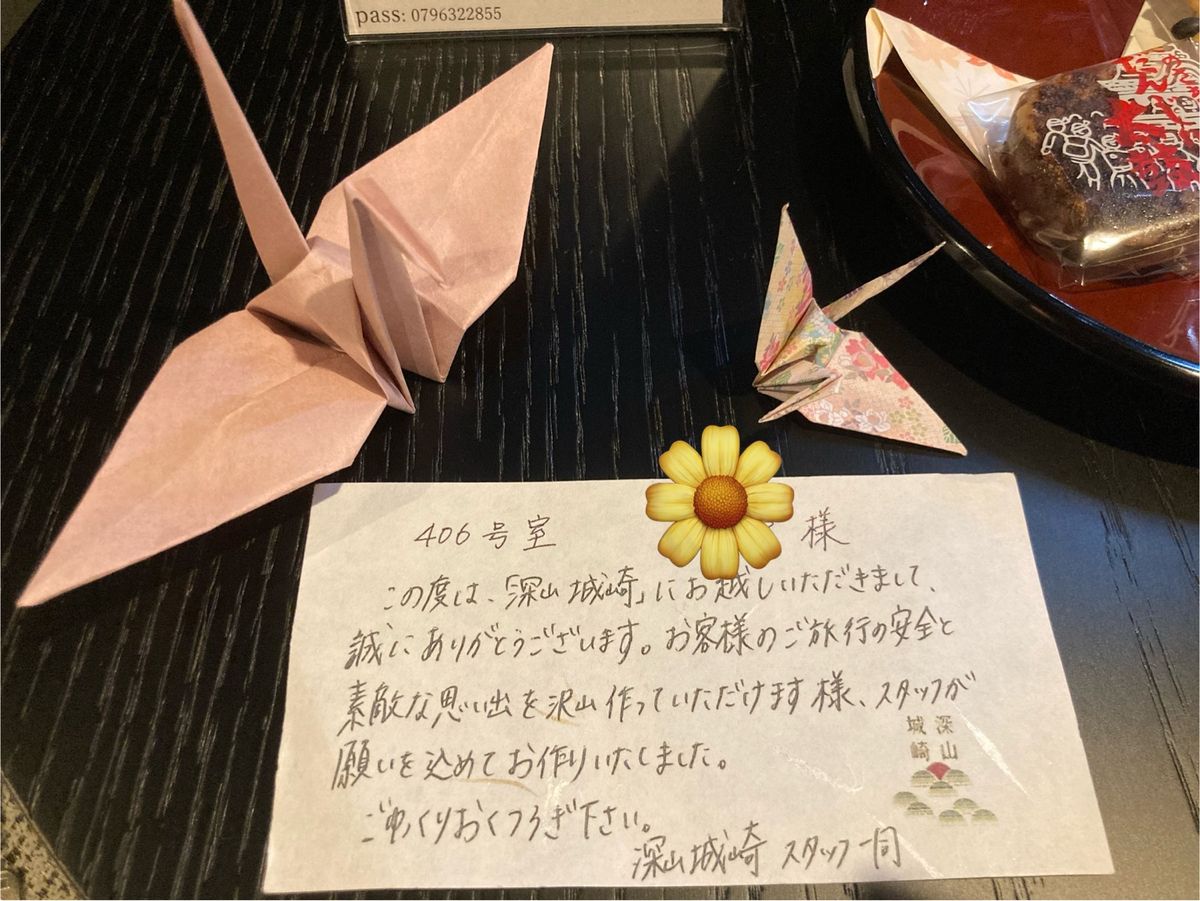 pass: 0796322855
406号室 様
この度は、「深山城崎」にお越しいただきまして、
誠にありがとうございます。お客様のご旅行の安全と
素敵な思い出を沢山作っていただけます様、スタッフが
願いを込めてお作りいたしました。
ごゆっくりおくつろぎ下さい。
深山城崎 スタッフ一同
深山
城崎